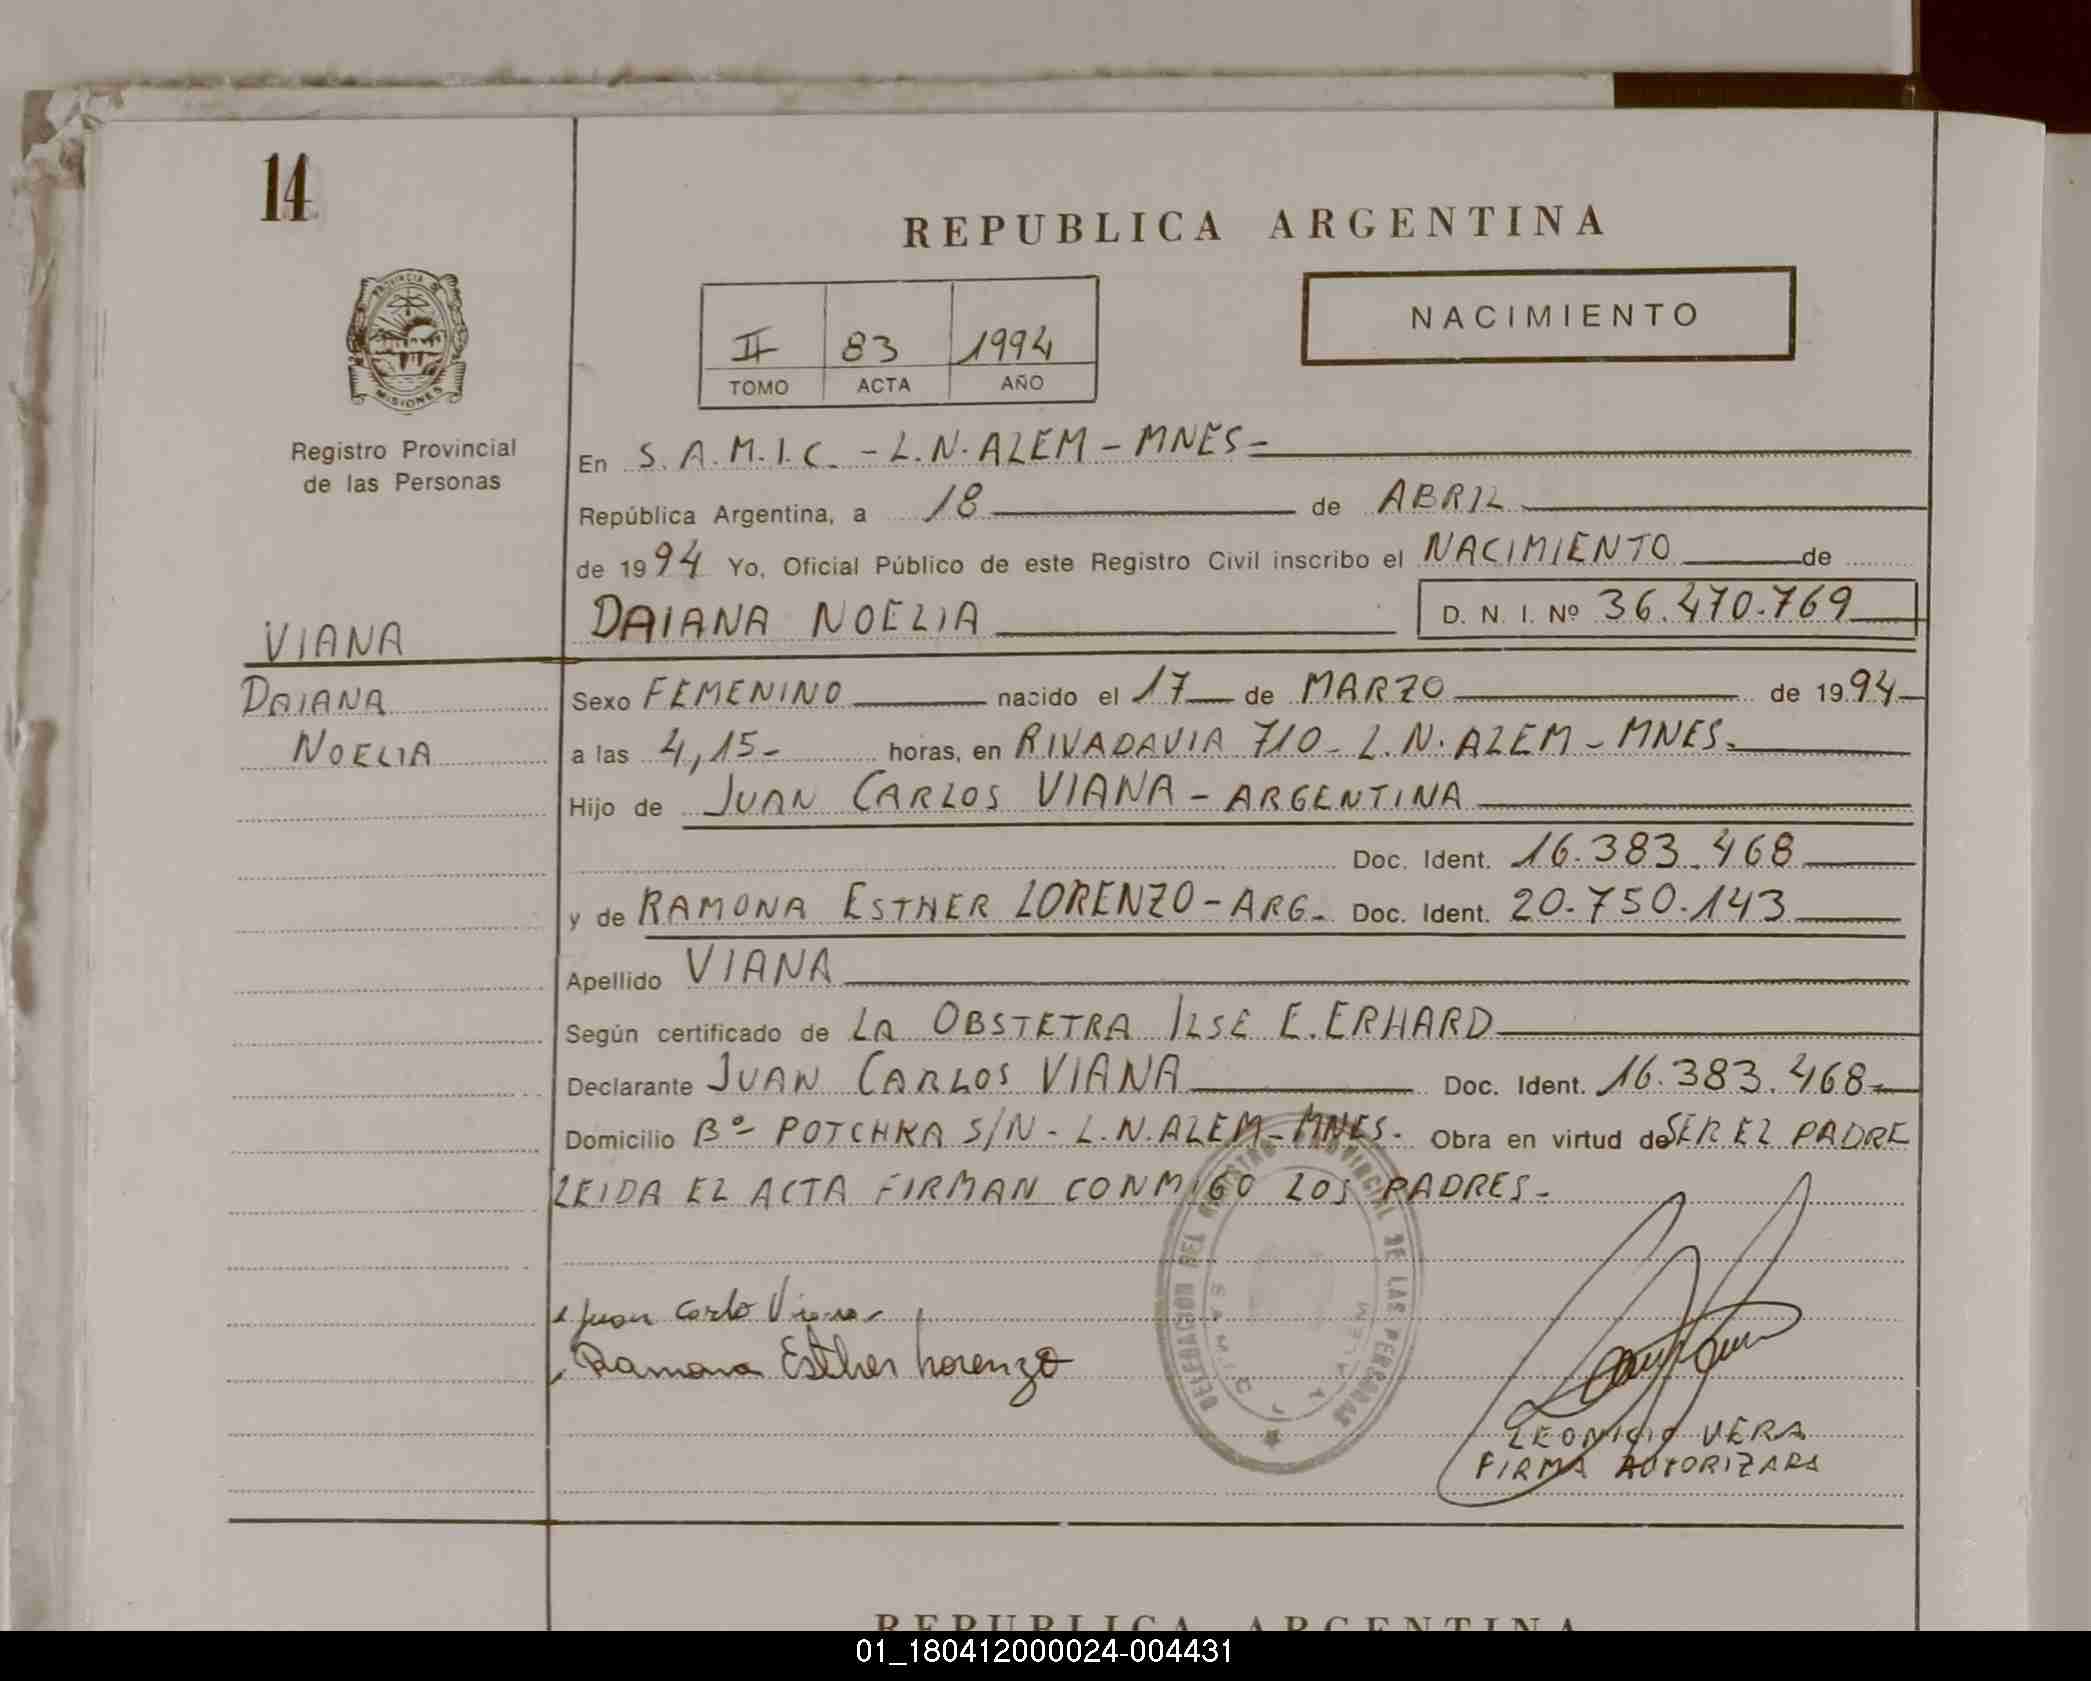 14
REPUBLICA ARGENTINA
PROVINCIA DE
MISIONES
Registro Provincial
de las Personas
NACIMIENTO
II 83 1994
TOMO ACTA AÑO
En S.A.M.I.C. - L.N. ALEM - MNES -
República Argentina, a 18 de ABRIL
de 1994 Yo, Oficial Público de este Registro Civil inscribo el NACIMIENTO de
DAIANA NOELIA D. N. I. Nº 36.470.769
VIANA
DAIANA
NOELIA
Sexo FEMENINO nacido el 17 de MARZO de 1994
a las 4,15- horas, en RIVADAVIA 710 - L.N. ALEM - MNES.
Hijo de JUAN CARLOS VIANA - ARGENTINA
Doc. Ident. 16.383.468
y de RAMONA ESTHER LORENZO - ARG. Doc. Ident. 20.750.143
Apellido VIANA
Según certificado de LA OBSTETRA ILSE E. ERHARD
Declarante JUAN CARLOS VIANA Doc. Ident. 16.383.468
Domicilio Bº POTCHKA S/N - L.N. ALEM - MNES. Obra en virtud de SER EL PADRE
LEIDA EL ACTA FIRMAN CONMIGO LOS PADRES.
DELEGACION DEL REGISTRO PROVINCIAL DE LAS PERSONAS
Juan Carlo Viana
Ramona Esther Lorenzo
LEONICIO VERA
FIRMA AUTORIZADA
REPUBLICA ARGENTINA
01_180412000024-004431